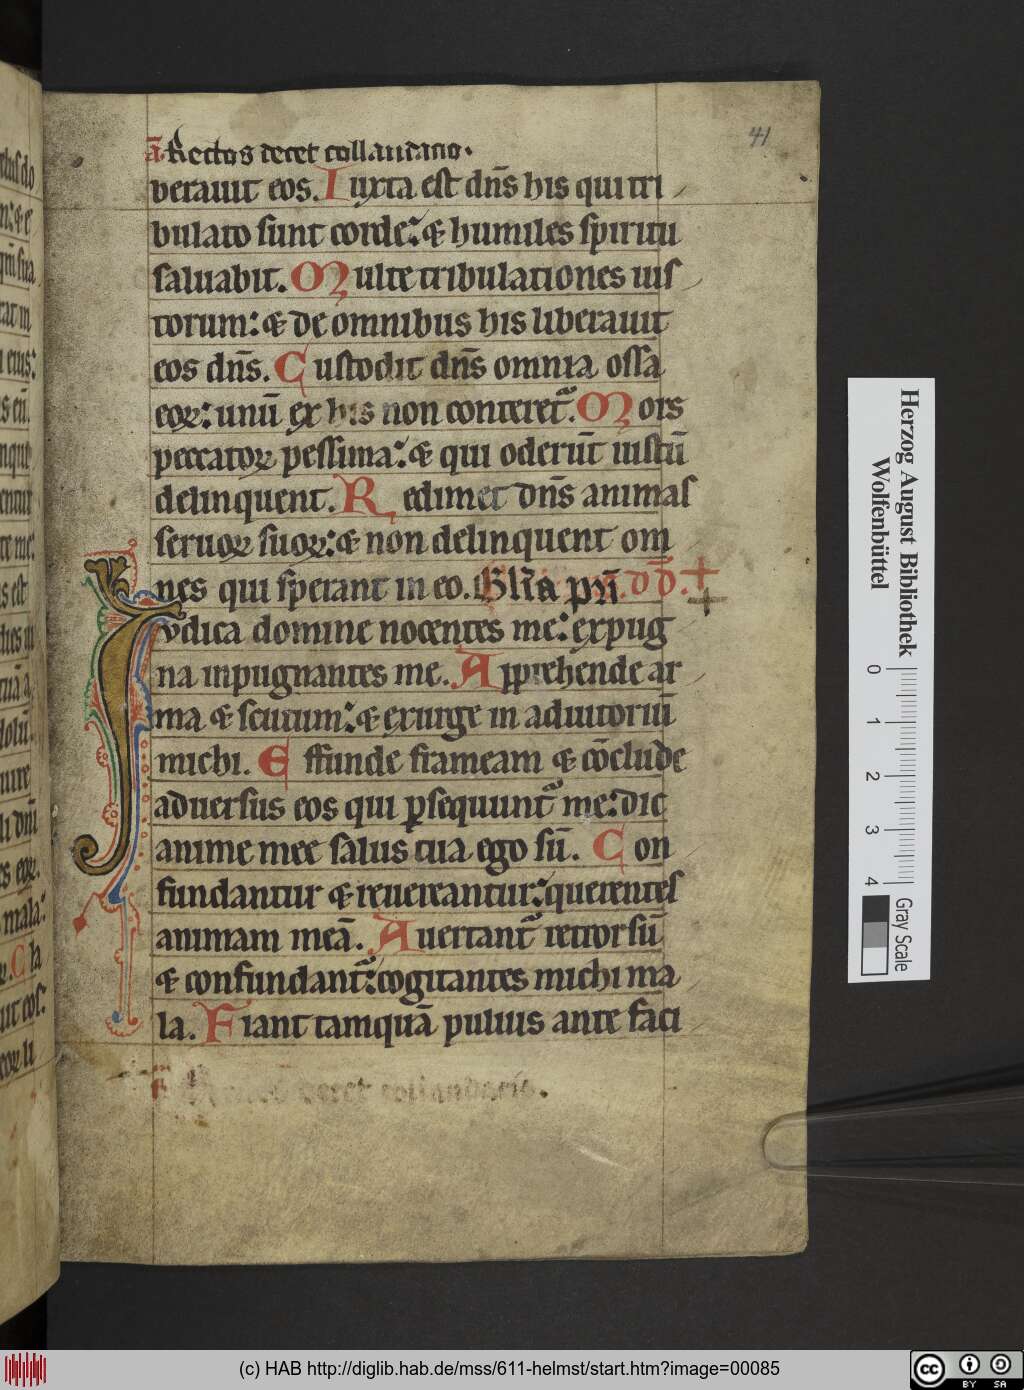 41
a. Rectos decet collaudatio.
berauit eos. Iuxta est dn̄s his qui tri
bulato sunt corde: & humiles spiritu
saluabit. Multe tribulationes ius
torum: & de omnibus his liberauit
eos dn̄s. Custodit dn̄s omnia ossa
eoꝝ: unū ex his non conteret᷑. Mors
peccatoꝝ pessima: & qui oderūt iustū
delinquent. Redimet dn̄s animas
seruoꝝ suoꝝ: & non delinquent om
nes qui sperant in eo. Glīa pr̄i
Iudica domine nocentes me: expug
na inpugnantes me. Apprehende ar
ma & scutum: & exurge in adiutoriū
michi. Effunde frameam & cōclude
aduersus eos qui ꝑsequunt᷑ me: dic
anime mee salus tua ego sū. Con
fundantur & reuereantur: querentes
animam meā. Auertant᷑ retrorsū
& confundant᷑: cogitantes michi ma
la. Fiant tamquā puluis ante faci
decet collaudatio.
Herzog August Bibliothek
Wolfenbüttel
0 1 2 3 4
Gray Scale
(c) HAB http://diglib.hab.de/mss/611-helmst/start.htm?image=00085
cc BY SA